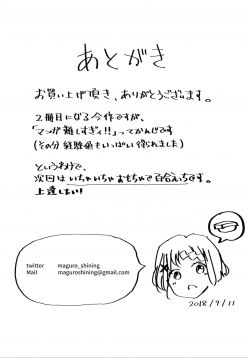 あとがき
お買い上げ頂き、ありがとうございます。
2冊目になる今作ですが、
「マンガ難しすぎィ!!」ってかんじです
(その分経験値もいっぱい得られました)
というわけで、
次回はいちゃいちゃおもちゃで百合えっちです。
上達したい!
twitter maguro_shining
Mail maguroshining@gmail.com
2018/9/11